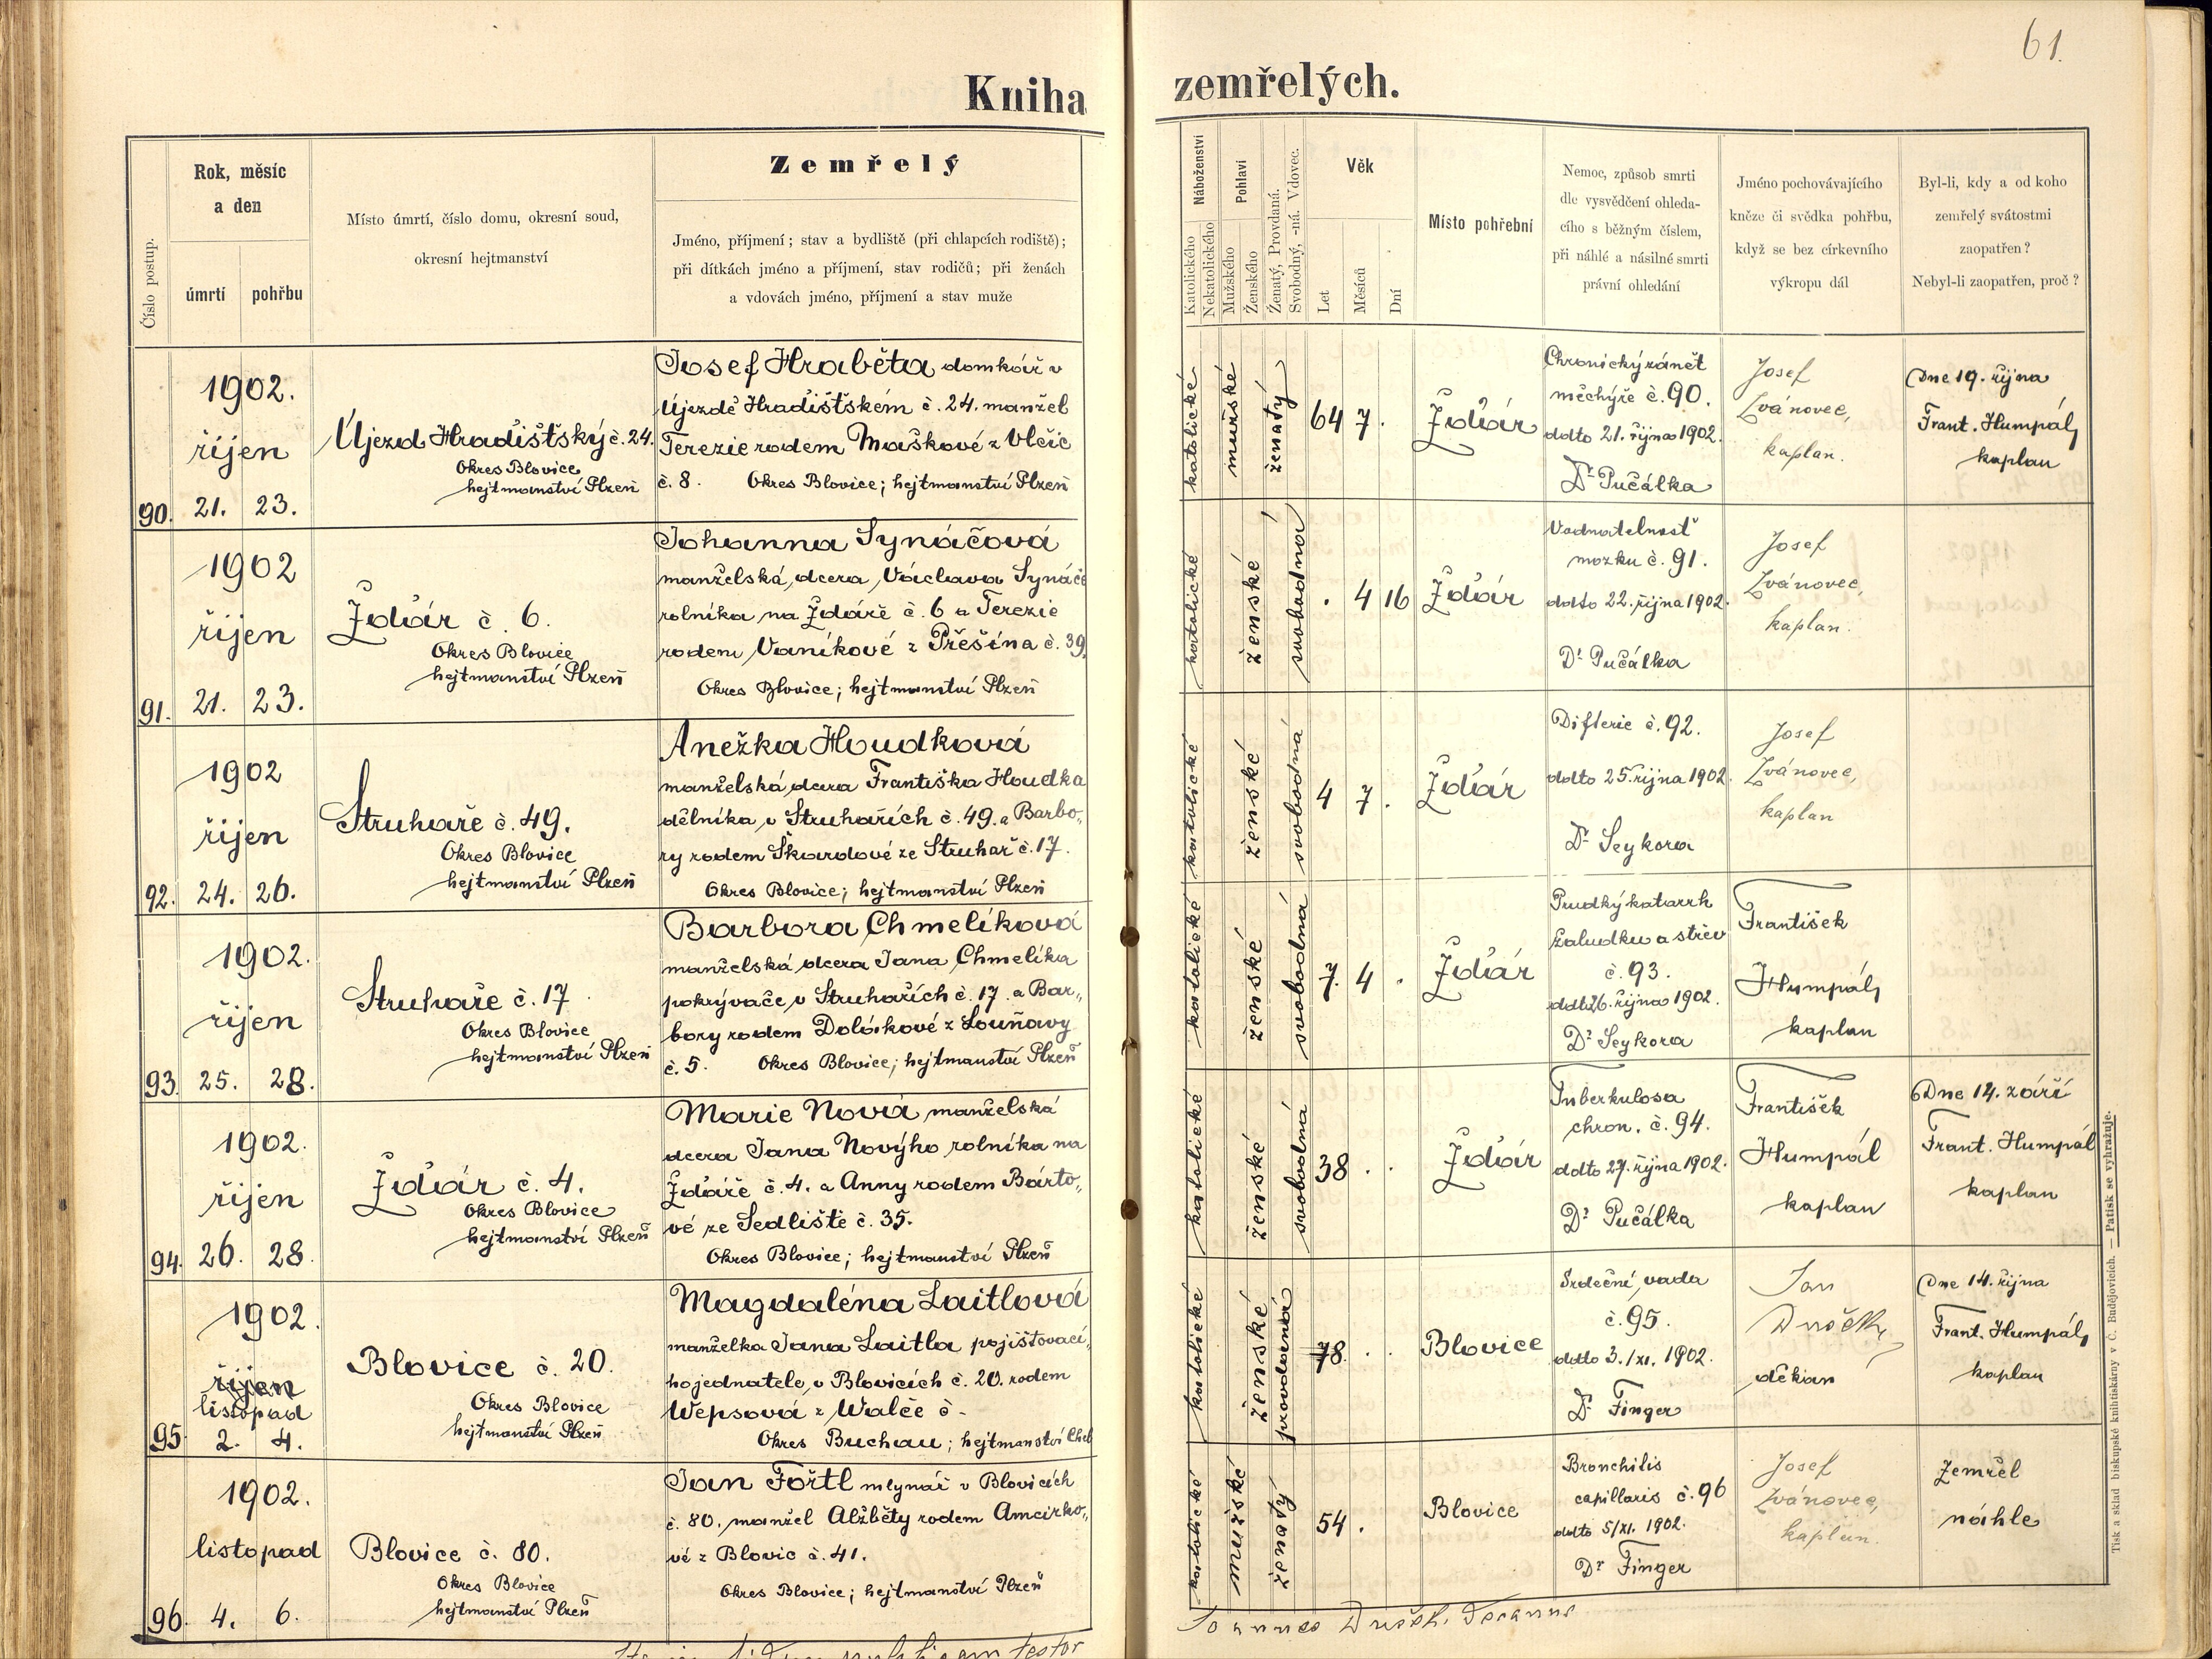 61.
Kniha zemřelých.
Číslo postup.
Rok, měsíc
a den
úmrtí
pohřbu
Místo úmrtí, číslo domu, okresní soud,
okresní hejtmanství
Zemřelý
Jméno, příjmení; stav a bydliště (při chlapcích rodiště);
při dítkách jméno a příjmení, stav rodičů; při ženách
a vdovách jméno, příjmení a stav muže
Náboženství
Katolického
Nekatolického
Pohlaví
Mužského
Ženského
Ženatý, Provdaná.
Svobodný, -ná. Vdovec.
Věk
Let
Měsíců
Dní
Místo pohřební
Nemoc, způsob smrti
dle vysvědčení ohleda-
cího s běžným číslem,
při náhlé a násilné smrti
právní ohledání
Jméno pochovávajícího
kněze či svědka pohřbu,
když se bez církevního
výkropu dál
Byl-li, kdy a od koho
zemřelý svátostmi
zaopatřen?
Nebyl-li zaopatřen, proč?
90.
1902.
říjen
21. 23.
Újezd Hradištský č. 24.
Okres Blovice
hejtmanství Plzeň
Josef Hraběta domkář v
Újezdě Hradištském č. 24. manžel
Terezie rodem Maškové z Vlčic
č. 8. Okres Blovice; hejtmanství Plzeň
katolické
mužské
ženatý
64 7 .
Ždár
Chronický zánět
měchýře č. 90.
ddto 21. října 1902.
Dr Pučálka
Josef
Zvánovec,
kaplan.
Dne 19. října
Frant. Humpál,
kaplan
91.
1902
říjen
21. 23.
Ždár č. 6.
Okres Blovice
hejtmanství Plzeň
Johanna Synáčová
manželská dcera Václava Synáče
rolníka na Ždáře č. 6 a Terezie
rodem Vaníkové z Přešína č. 39.
Okres Blovice; hejtmanství Plzeň
katolické
ženské
svobodná
. 4 16
Ždár
Vodnatelnosť
mozku č. 91.
ddto 22. října 1902.
Dr Pučálka
Josef
Zvánovec,
kaplan.
92.
1902
říjen
24. 26.
Struhaře č. 49.
Okres Blovice
hejtmanství Plzeň
Anežka Houdková
manželská dcera Františka Houdka
dělníka v Struhařích č. 49. a Barbo„
ry rodem Škardové ze Struhař č. 17.
Okres Blovice; hejtmanství Plzeň
katolické
ženské
svobodná
4 7 .
Ždár
Difterie č. 92.
ddto 25. října 1902.
Dr Seykora
Josef
Zvánovec,
kaplan
93.
1902.
říjen
25. 28.
Struhaře č. 17.
Okres Blovice
hejtmanství Plzeň
Barbora Chmelíková
manželská dcera Jana Chmelíka
pokrývače v Struhařích č. 17. a Bar„
bory rodem Dolákové z Louňavy
č. 5. Okres Blovice; hejtmanství Plzeň
katolické
ženské
svobodná
7. 4 .
Ždár
Prudký katarrh
žaludku a střev
č. 93.
ddto 26. října 1902.
Dr Seykora
František
Humpál,
kaplan
94.
1902.
říjen
26. 28.
Ždár č. 4.
Okres Blovice
hejtmanství Plzeň
Marie Nová manželská
dcera Jana Novýho rolníka na
Ždáře č. 4. a Anny rodem Bárto„
vé ze Sedliště č. 35.
Okres Blovice; hejtmanství Plzeň
katolické
ženské
svobodná
38 . .
Ždár
Tuberkulosa
chron. č. 94.
ddto 27. října 1902.
Dr Pučálka
František
Humpál
kaplan
Dne 14. září
Frant. Humpál
kaplan
95
1902.
říjen
listopad
2. 4.
Blovice č. 20.
Okres Blovice
hejtmanství Plzeň
Magdaléna Laitlová
manželka Jana Laitla pojišťovací„
ho jednatele v Blovicích č. 20. rodem
Wepsová z Walče č -
Okres Buchau; hejtmanství Cheb
katolické
ženské
provdaná
78. . .
Blovice
Srdeční vada
č. 95.
ddto 3./XI. 1902.
Dr Finger
Jan
děkan
Dne 14. října
Frant. Humpál,
kaplan
96.
1902.
listopad
4. 6.
Blovice č. 80.
Okres Blovice
hejtmanství Plzeň
Jan Fořtl mlynář v Blovicích
č. 80. manžel Alžběty rodem Amcirko„
vé z Blovic č. 41.
Okres Blovice; hejtmanství Plzeň
katolické
mužské
ženatý
54 .
Blovice
Bronchitis
capillaris č. 96
ddto 5/XI. 1902.
Dr Finger
Josef
Zvánovec,
kaplan.
Zemřel
náhle
Tisk a sklad biskupské knihtiskárny v Č. Budějovicích. — Patisk se vyhražuje.
testor